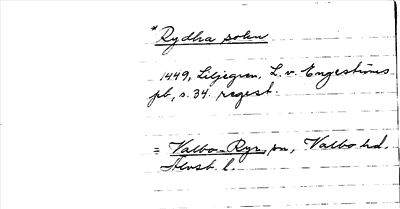 *Rydha sokn
1449, Liljegren, L. v. Engeströms
pb, s. 34. regest.
= Valbo-Ryr sn, Valbo hd.
Älvsb. l.